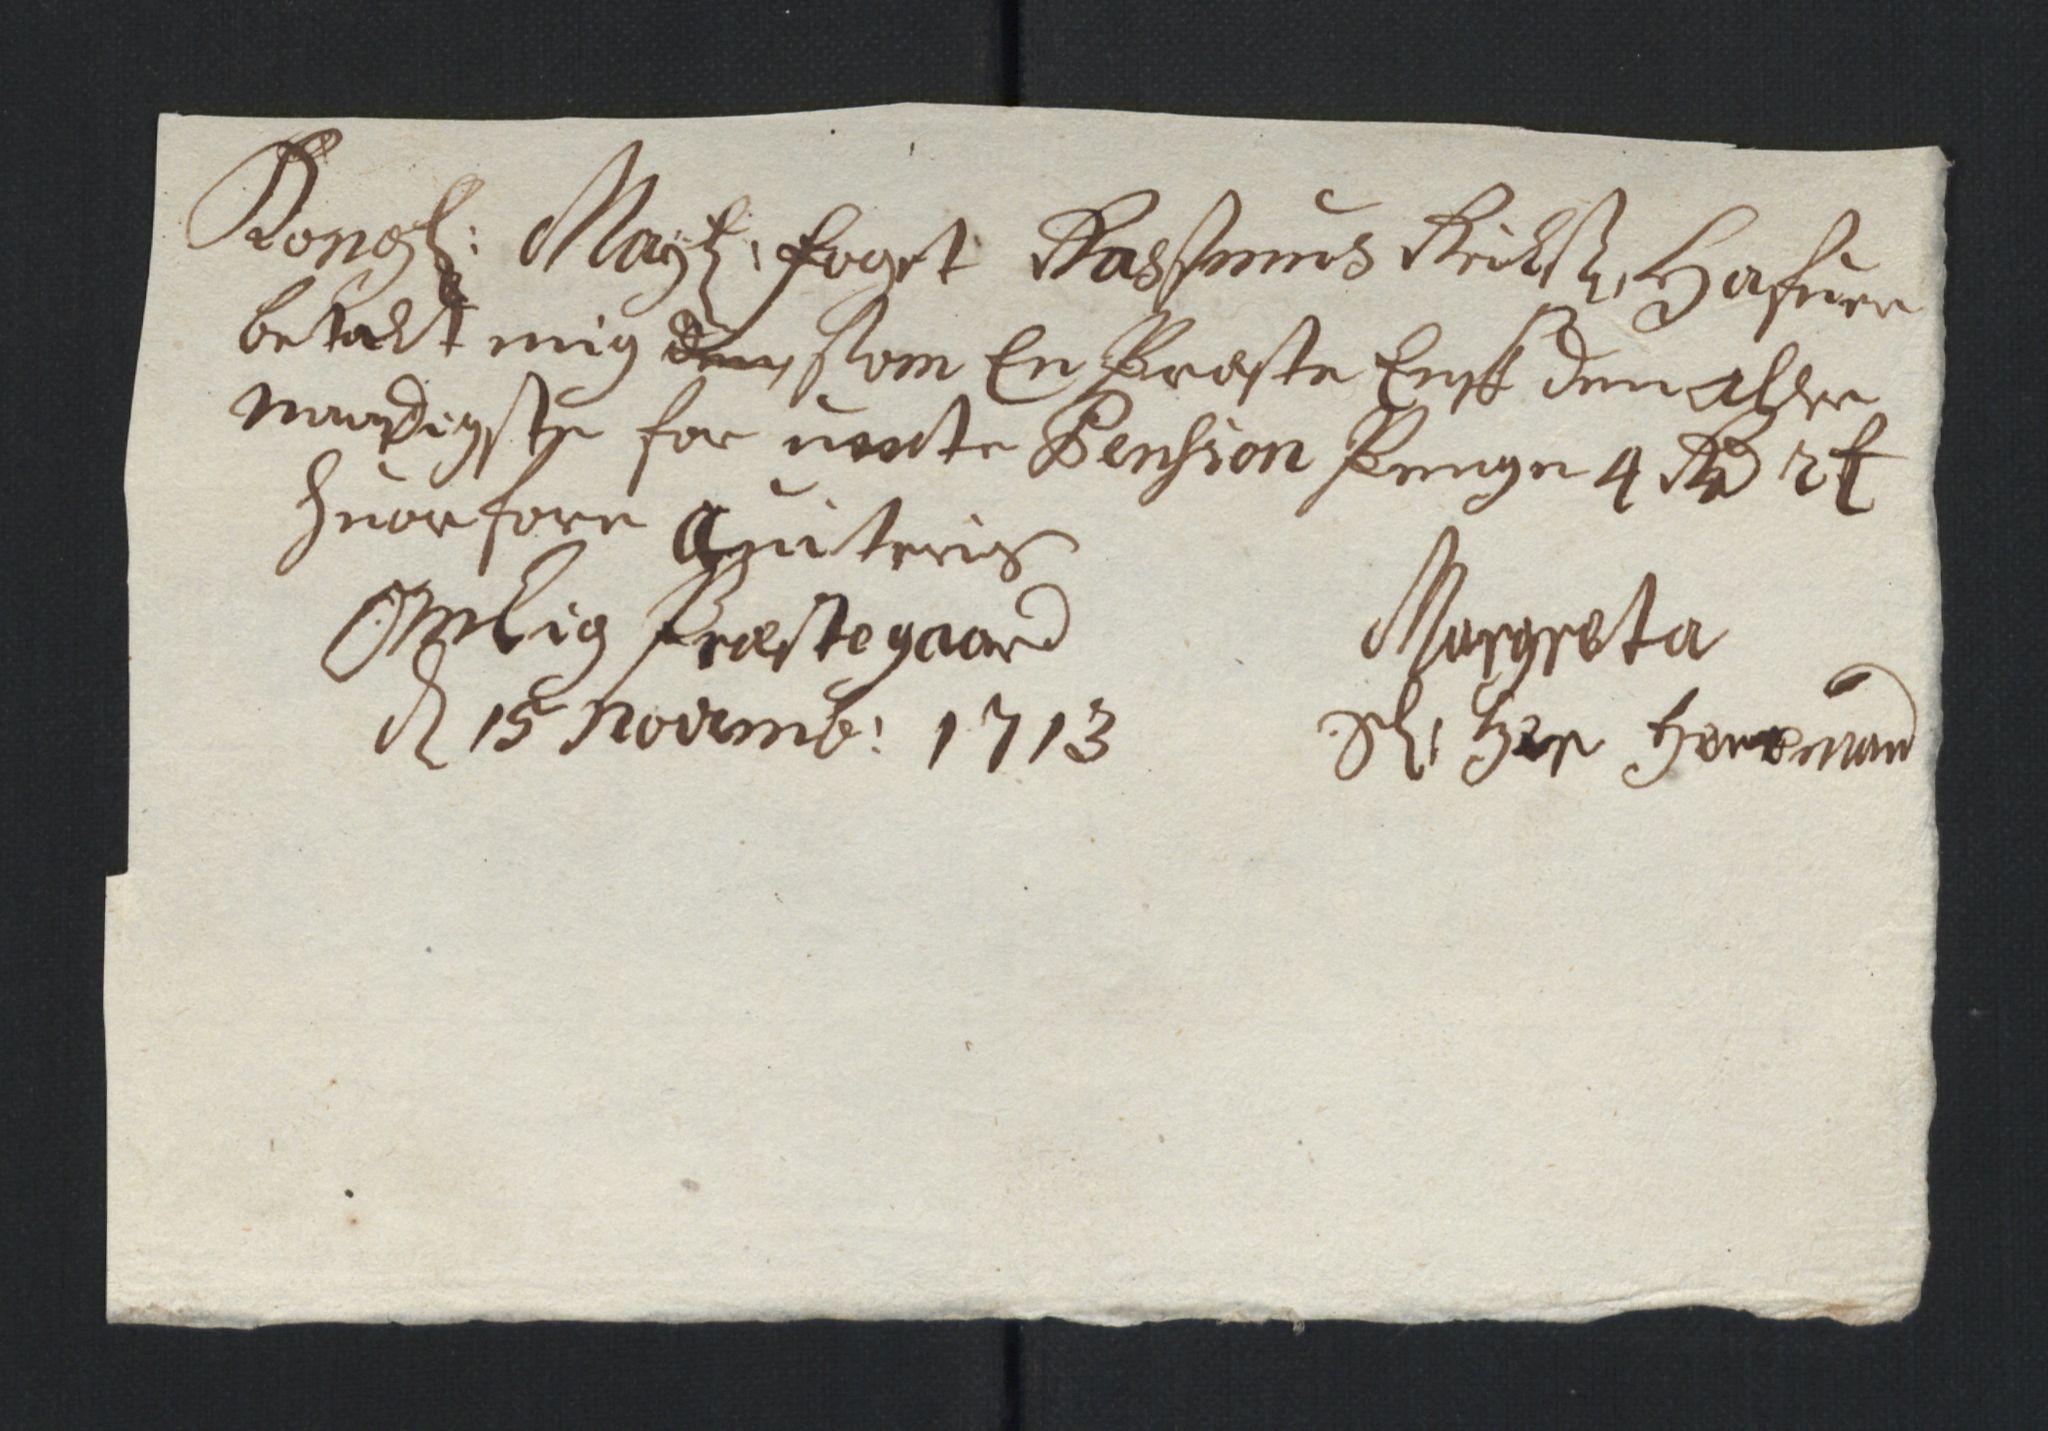 Kongl: Mayts: foget Rassmus Richsn, Hafuer
betalt mig som En Præste Enke den aller
naadigste for unte Penhsion Penge 4 Rd 2 
huorfore Quiteris
Omlig Præstegaard
d 15 Novemb: 1713
Margreta
Sl: Her Hermand